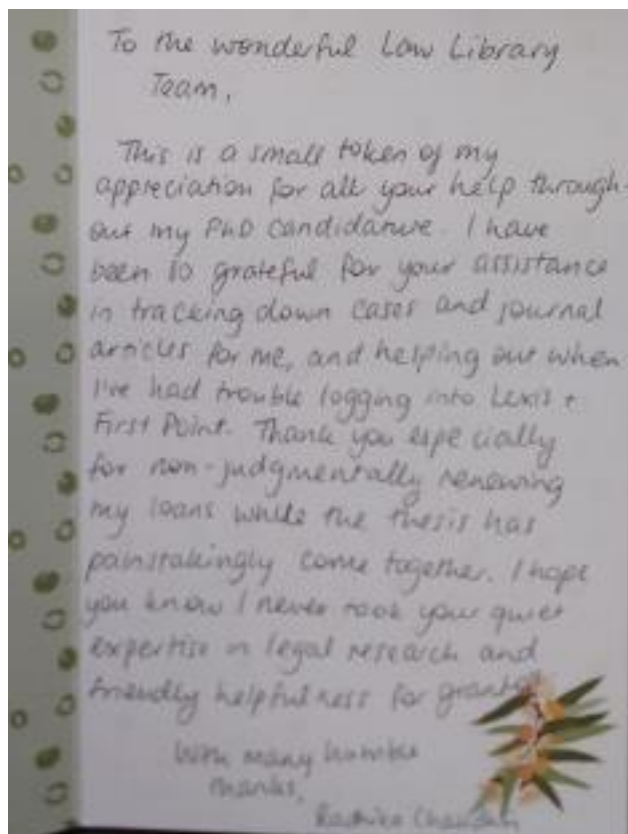 To the wonderful Law Library
Team,
This is a small token of my
appreciation for all your help through-
out my PhD candidature. I have
been so grateful for your assistance
in tracking down cases and journal
articles for me, and helping out when
I've had trouble logging into Lexis +
First Point. Thank you especially
for non-judgmentally renewing
my loans while the thesis has
painstakingly come together. I hope
you know I never took your quiet
expertise in legal research and
friendly helpfulness for granted.
With many humble
thanks,